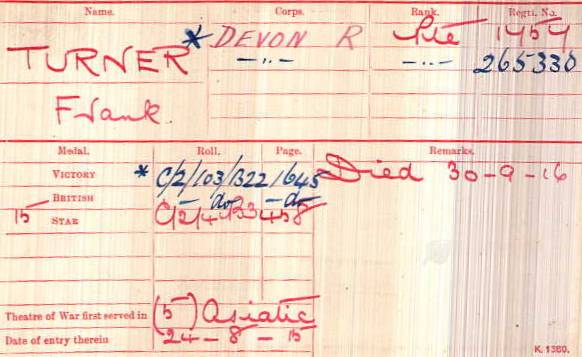 Name. Corps. Rank. Regtl. No.
* DEVON R Pte 1454
TURNER —"— —"— 265330
Frank.
Medal. Roll. Page. Remarks.
VICTORY * C/2/103/B22 1645 Died 30-9-16
BRITISH — do — do
15 STAR C/2/4/B3 458
Theatre of War first served in (5) Asiatic
Date of entry therein 24-8-15
K. 1380.